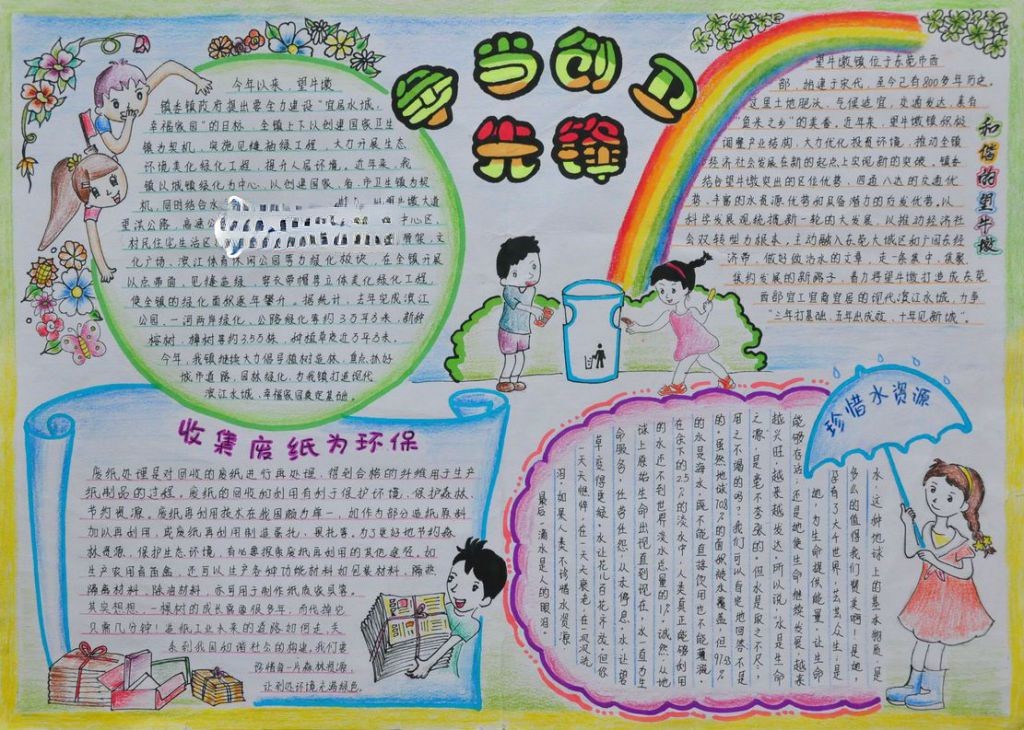 争当创卫
先锋
今年以来，望牛墩
镇委镇政府提出要全力建设“宜居水城，
幸福家园”的目标，全镇上下以创建国家卫生
镇为契机，实施见缝插绿工程，大力开展生态
环境美化绿化工程，提升人居环境。近年来，我
镇以城镇绿化为中心，以创建国家、省、市卫生镇为契
机，同时结合水
望洪公路，高速公
村民住宅生活区
文化广场、滨江体育休闲公园等为绿化板块，在全镇开展
以点带面，见缝造绿，穿衣带帽等立体美化绿化工程，
使全镇的绿化面积逐年攀升。据统计，去年完成滨江
公园、一河两岸绿化、公路绿化等约3万平方米，新种
榕树、樟树等约355株，种植草皮近3万平方米。
今年，我镇继续大力倡导植树造林，重点抓好
城市道路，园林绿化，为我镇打造现代
滨江水城、幸福家园奠定基础。
望牛墩镇位于东莞市西
部，始建于宋代，至今已有800多年历史。
这里土地肥沃，气候适宜，交通发达，素有
“鱼米之乡”的美誉。近年来，望牛墩镇积极
调整产业结构，大力优化投资环境，推动全镇
经济社会发展在新的起点上实现新的突破。镇委
结合望牛墩突出的区位优势，四通八达的交通优
势、丰富的水资源优势和具备潜力的后发优势，以
科学发展观统揽新一轮的大发展，以推动经济社
会双转型为根本，主动融入东莞大城区和广园东经
济带，做好做活水的文章，走一条集中、集聚、
集约发展的新路子，着力将望牛墩打造成东莞
西部宜工宜商宜居的现代滨江水城，力争
“三年打基础，五年出成效，十年见新城”。
和谐的望牛墩
收集废纸为环保
废纸处理是对回收的废纸进行再处理，得到合格的纤维用于生产
纸制品的过程。废纸的回收和利用有利于保护环境，保护森林，
节约资源。废纸再利用技术在我国颇为单一，如作为部分造纸原料
加以再利用，或废纸再利用制造蛋托、果托等。为了更好地节约森
林资源，保护生态环境，有必要探索废纸再利用的其他途径，如
生产农用育苗盒，还可以生产各种功能材料如包装材料、隔热
隔离材料、除油材料，亦可用于制作纸质家具等。
其实想想，一棵树的成长需要很多年，而砍掉它
只需几分钟！造纸工业未来的道路如何走，关
系到我国和谐社会的构建，我们要
珍惜每一片森林资源，
让到处环境充满绿色。
珍惜水资源
水，这种地球上的基本物质，是
多么的值得我们赞美啊！是她，
孕育了大千世界，芸芸众生；是
她，为生命提供能量，让生命
能够存活；还是她，使生命继续发展，越来
越兴旺，越来越发达。所以说，水是生命
之源，是毫不夸张的。但水是取之不尽，
用之不竭的吗？我们可以自觉地回答：不是
的。虽然地球70.8%的面积被水覆盖，但97.5%
的水是海水，既不能直接饮用也不能灌溉。
在余下的2.5%的淡水中，人类真正能够利用
的水还不到世界淡水总量的1%。诚然，从地
球上原始生命出现直到现在，水一直为生
命服务，任劳任怨，从未停息。水，让碧
草变得更绿，水让花儿百花齐放，但你
一天天憔悴，在一天天衰老，在一次次流
泪，如果人类不珍惜水资源，
最后一滴水是人的眼泪